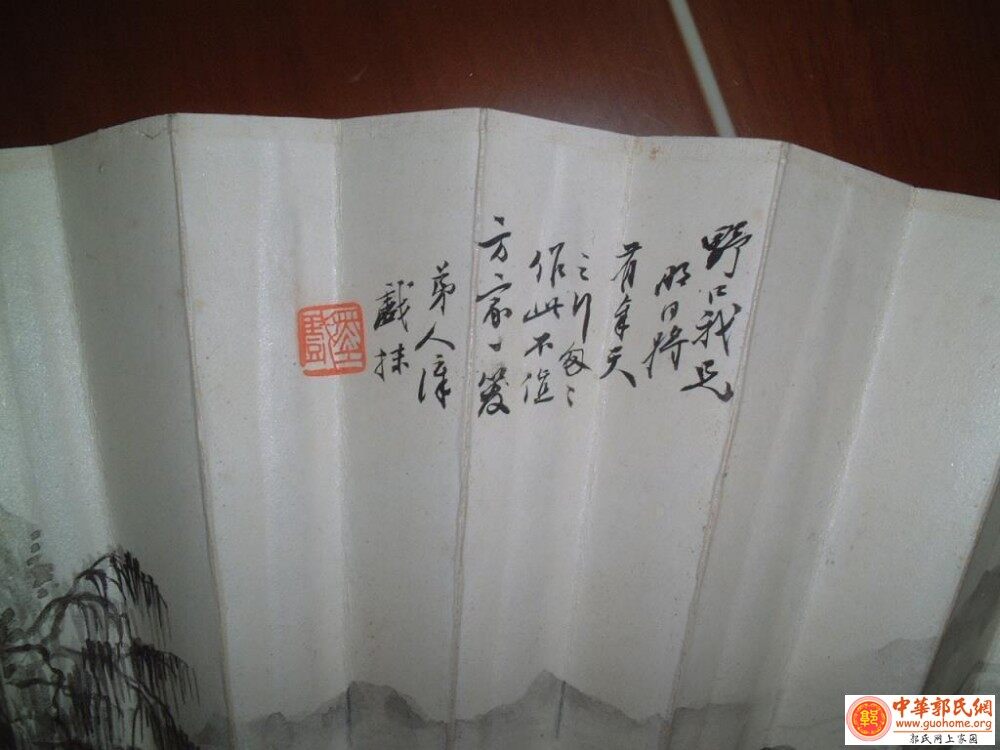 野口我兄
明日将
有奉天
之行匆々
作此不值
方家一笑
弟人漳
戲抹
中華郭氏網
www.guohome.org
郭氏网上家园